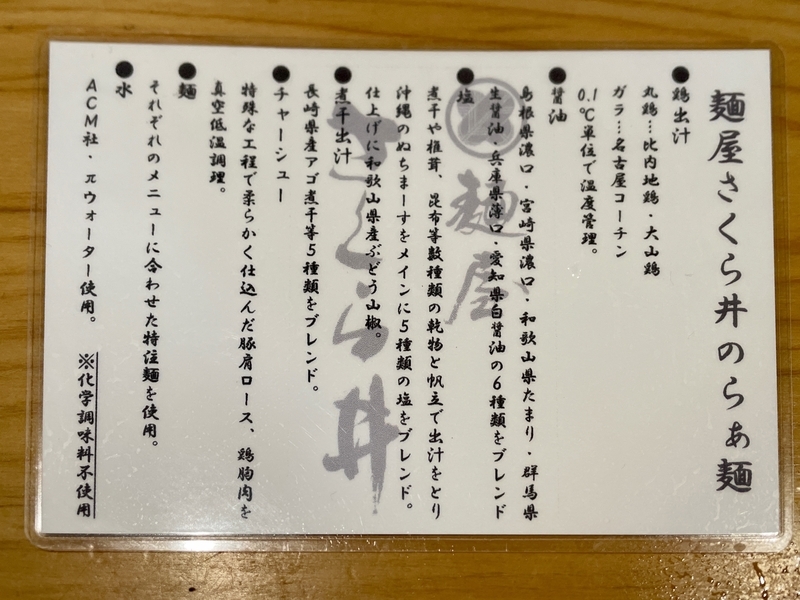 麺屋さくら井のらぁ麺
●鶏出汁
丸鶏…比内地鶏・大山鶏
ガラ…名古屋コーチン
0.1℃単位で温度管理。
●醤油
島根県濃口・宮崎県濃口・和歌山県たまり・群馬県
生醤油・兵庫県薄口・愛知県白醤油の6種類をブレンド
●塩
煮干や椎茸、昆布等数種類の乾物と帆立で出汁をとり
沖縄のぬちまーすをメインに5種類の塩をブレンド。
仕上げに和歌山県産ぶどう山椒。
●煮干出汁
長崎県産アゴ煮干等5種類をブレンド。
●チャーシュー
特殊な工程で柔らかく仕込んだ豚肩ロース、鶏胸肉を
真空低温調理。
●麺
それぞれのメニューに合わせた特注麺を使用。
●水
ACM社・πウォーター使用。
※化学調味料不使用
麺屋
さくら井